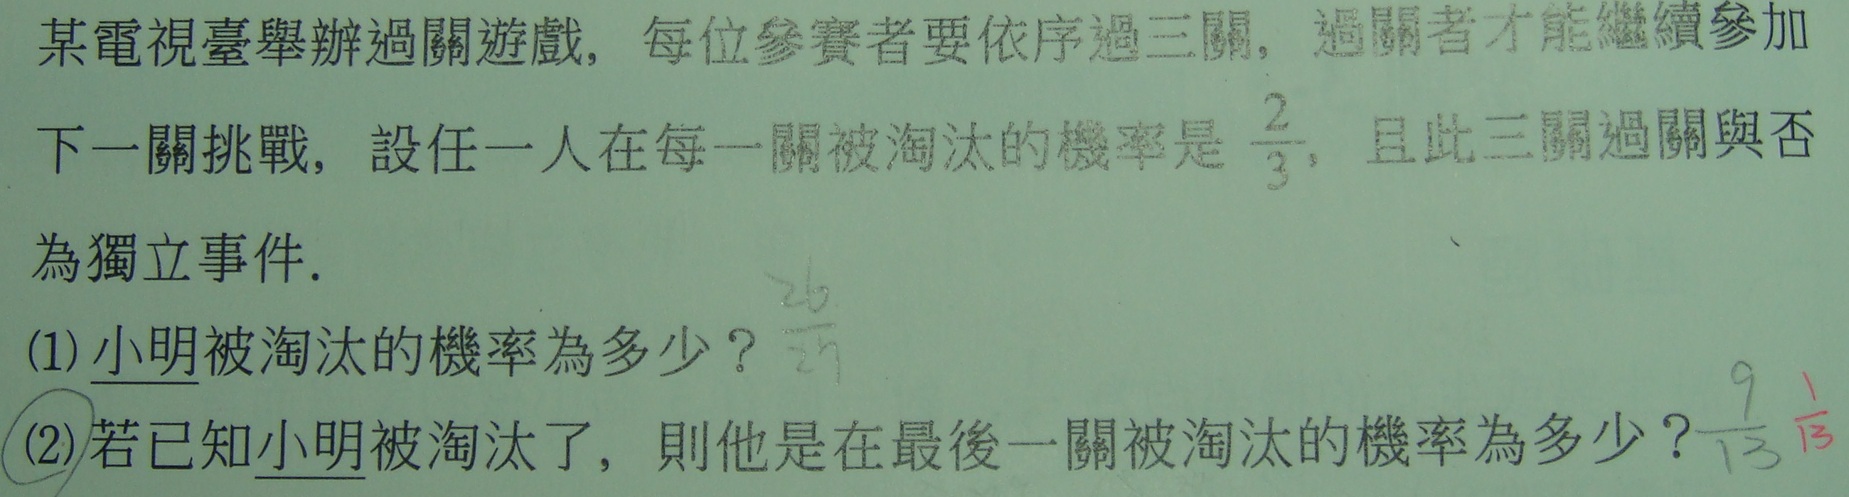 某電視臺舉辦過關遊戲，每位參賽者要依序過三關，過關者才能繼續參加
下一關挑戰，設任一人在每一關被淘汰的機率是 2/3，且此三關過關與否
為獨立事件．
(1) 小明被淘汰的機率為多少？ 26/27
(2) 若已知小明被淘汰了，則他是在最後一關被淘汰的機率為多少？ 9/13 1/13